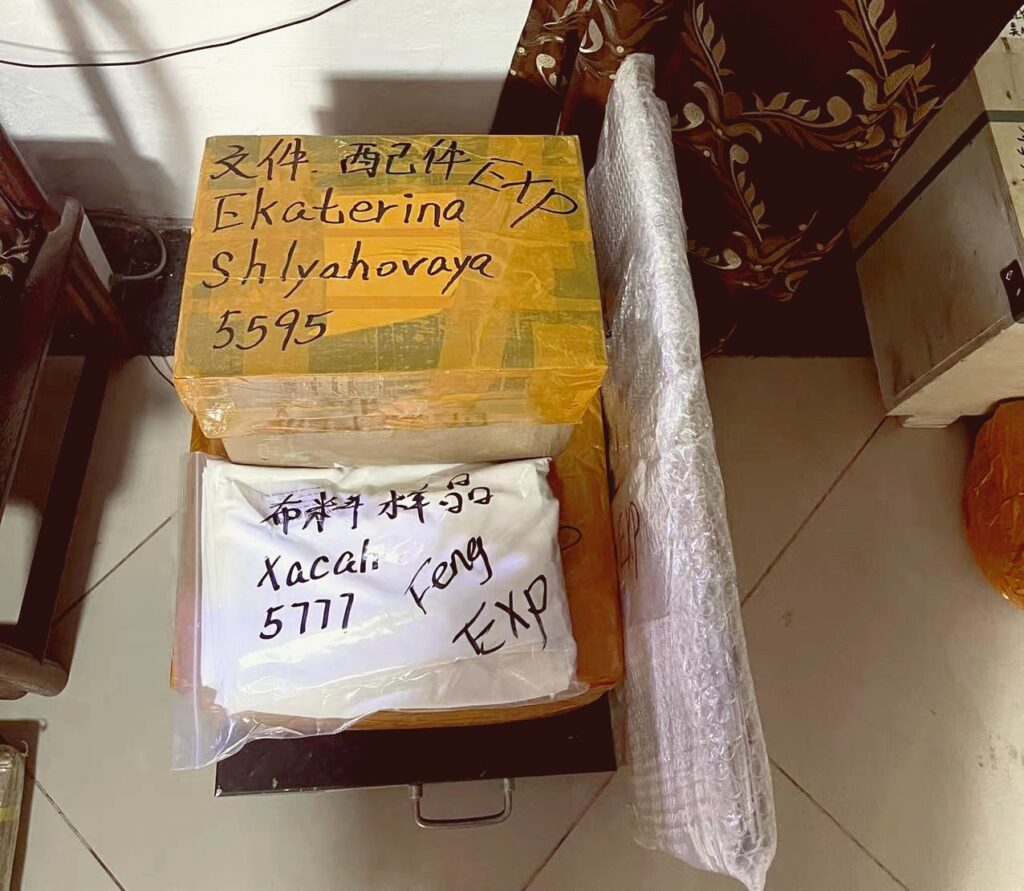 文件. 配件 EXP
Ekaterina
Shlyahovaya
5595
布料样品
Xacah
Feng
5777
EXP
EXP